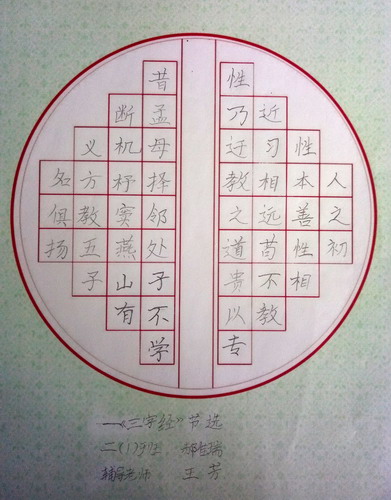 人之初
性本善性相
近习相远苟不教
性乃迁教之道贵以专
昔孟母择邻处子不学
断机杼窦燕山有
义方教五子
名俱扬
—《三字经》节选
二(1)班
辅导老师 王芳